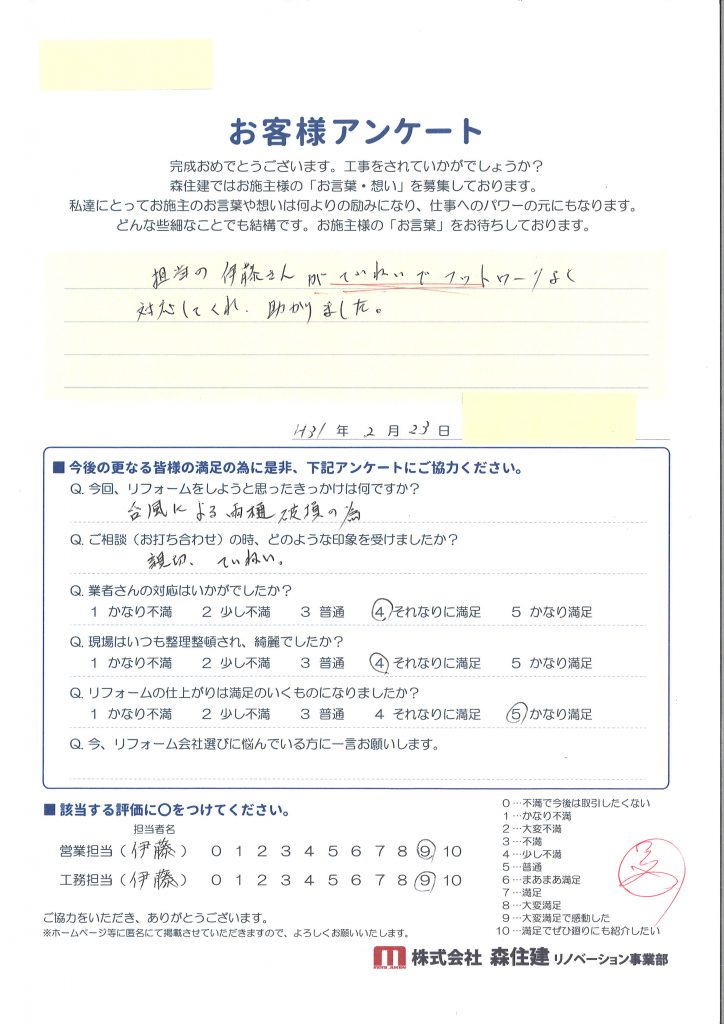 お客様アンケート
完成おめでとうございます。工事をされていかがでしょうか?
森住建ではお施主様の「お言葉・想い」を募集しております。
私達にとってお施主のお言葉や想いは何よりの励みになり、仕事へのパワーの元にもなります。
どんな些細なことでも結構です。お施主様の「お言葉」をお待ちしております。
担当の伊藤さんがていねいでフットワークよく
対応してくれ、助かりました。
H31年2月23日
■ 今後の更なる皆様の満足の為に是非、下記アンケートにご協力ください。
Q. 今回、リフォームをしようと思ったきっかけは何ですか?
台風による雨樋破損の為
Q. ご相談(お打ち合わせ)の時、どのような印象を受けましたか?
親切、ていねい。
Q. 業者さんの対応はいかがでしたか?
1 かなり不満 2 少し不満 3 普通 4 それなりに満足 5 かなり満足
Q. 現場はいつも整理整頓され、綺麗でしたか?
1 かなり不満 2 少し不満 3 普通 4 それなりに満足 5 かなり満足
Q. リフォームの仕上がりは満足のいくものになりましたか?
1 かなり不満 2 少し不満 3 普通 4 それなりに満足 5 かなり満足
Q. 今、リフォーム会社選びに悩んでいる方に一言お願いします。
■ 該当する評価に〇をつけてください。
担当者名
営業担当(伊藤) 0 1 2 3 4 5 6 7 8 9 10
工務担当(伊藤) 0 1 2 3 4 5 6 7 8 9 10
0…不満で今後は取引したくない
1…かなり不満
2…大変不満
3…不満
4…少し不満
5…普通
6…まあまあ満足
7…満足
8…大変満足
9…大変満足で感動した
10…満足でぜひ廻りにも紹介したい
ご協力をいただき、ありがとうございます。
※ホームページ等に匿名にて掲載させていただきますので、よろしくお願いいたします。
株式会社 森住建 リノベーション事業部